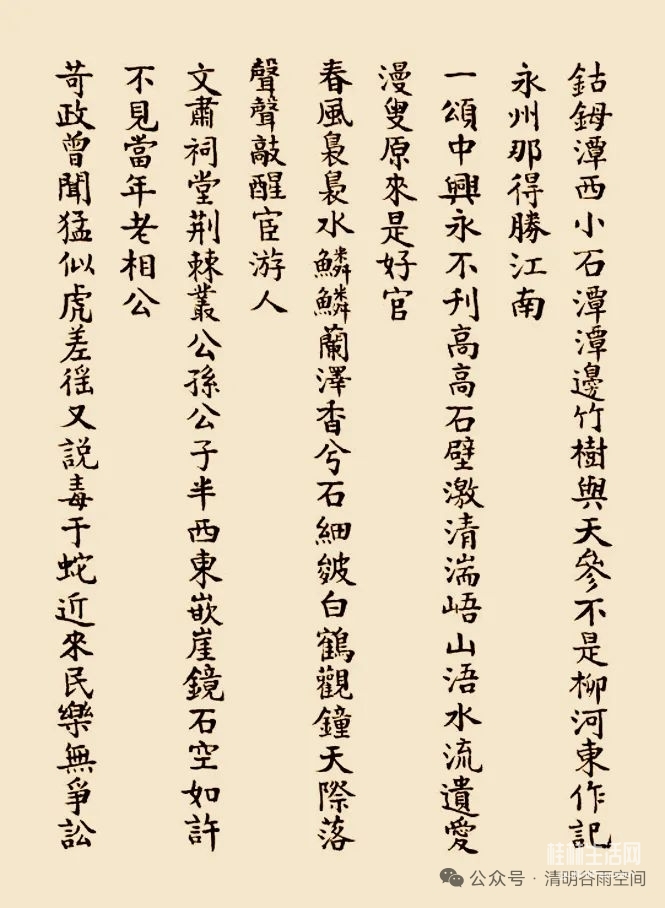 鈷鉧潭西小石潭潭邊竹樹與天參不是柳河東作記
永州那得勝江南
一頌中興永不刊高高石壁激清湍峿山浯水流遺愛
漫叟原來是好官
春風裊裊水鱗鱗蘭澤香兮石細皴白鶴觀鐘天際落
聲聲敲醒宦游人
文肅祠堂荆棘叢公孫公子半西東嵌崖鏡石空如許
不見當年老相公
苛政曾聞猛似虎差徭又説毒于蛇近來民樂無爭訟
桂林生活网
公众号·清明谷雨空间